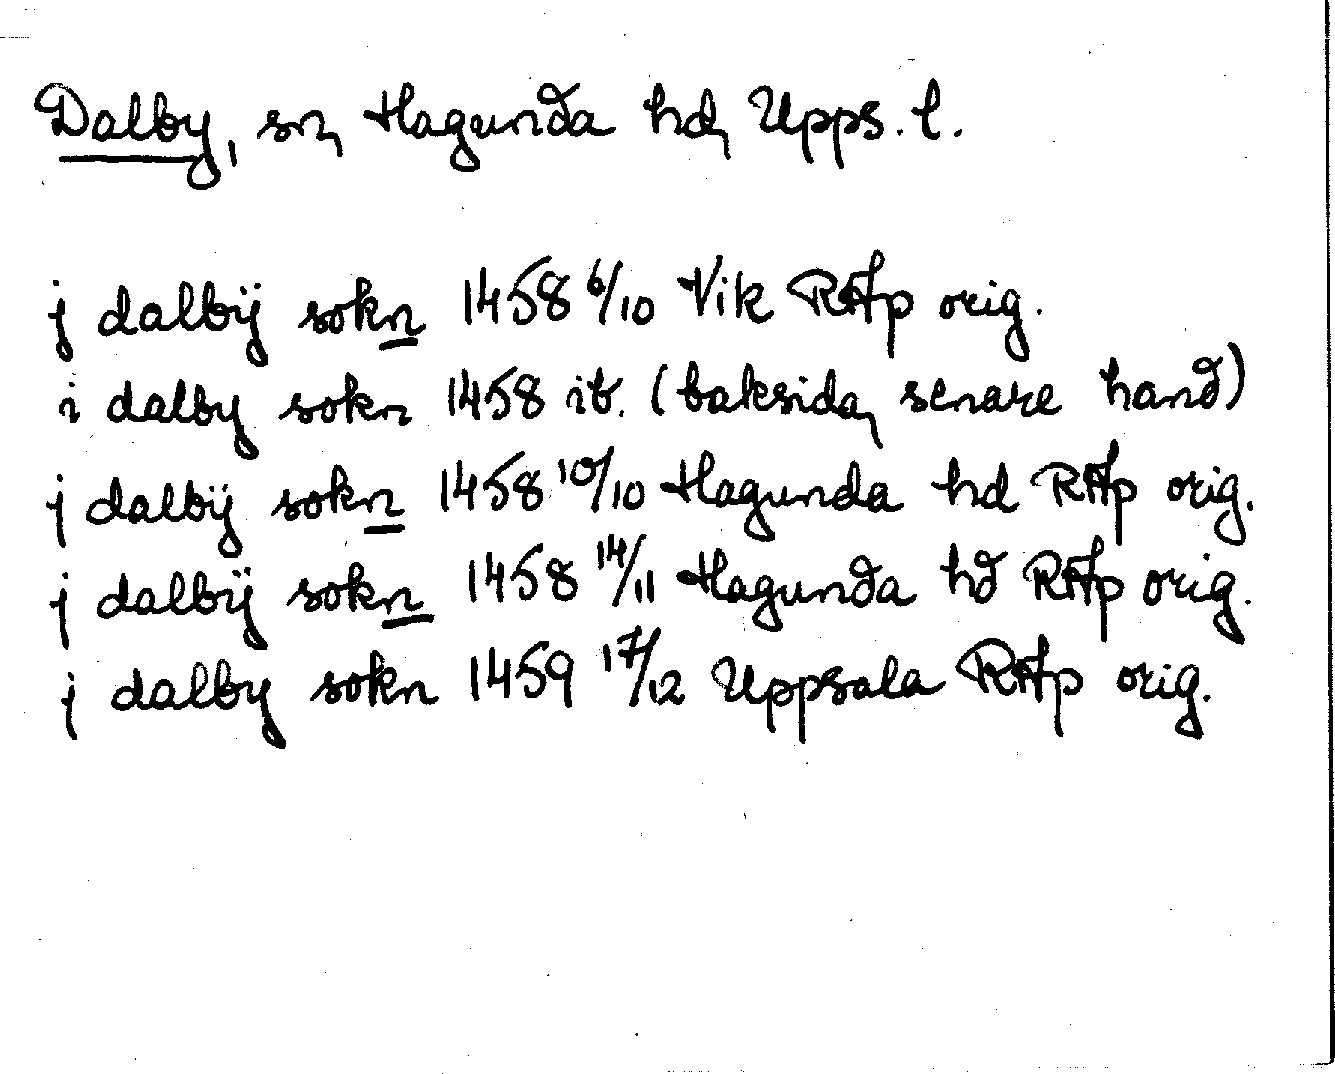 Dalby, sn, Hagunda hd, Upps. l.
j dalbÿ sokn 1458 6/10 Vik RAp orig.
i dalby sokn 1458 ib. (baksida, senare hand)
j dalbÿ sokn 1458 10/10 Hagunda hd RAp orig.
j dalbÿ sokn 1458 14/11 Hagunda hd RAp orig.
j dalby sokn 1459 17/12 Uppsala RAp orig.